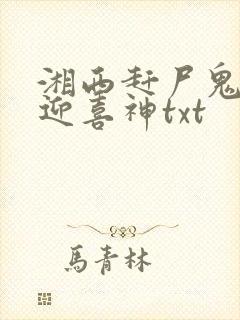 湘西赶尸鬼
迎喜神txt
馬青林